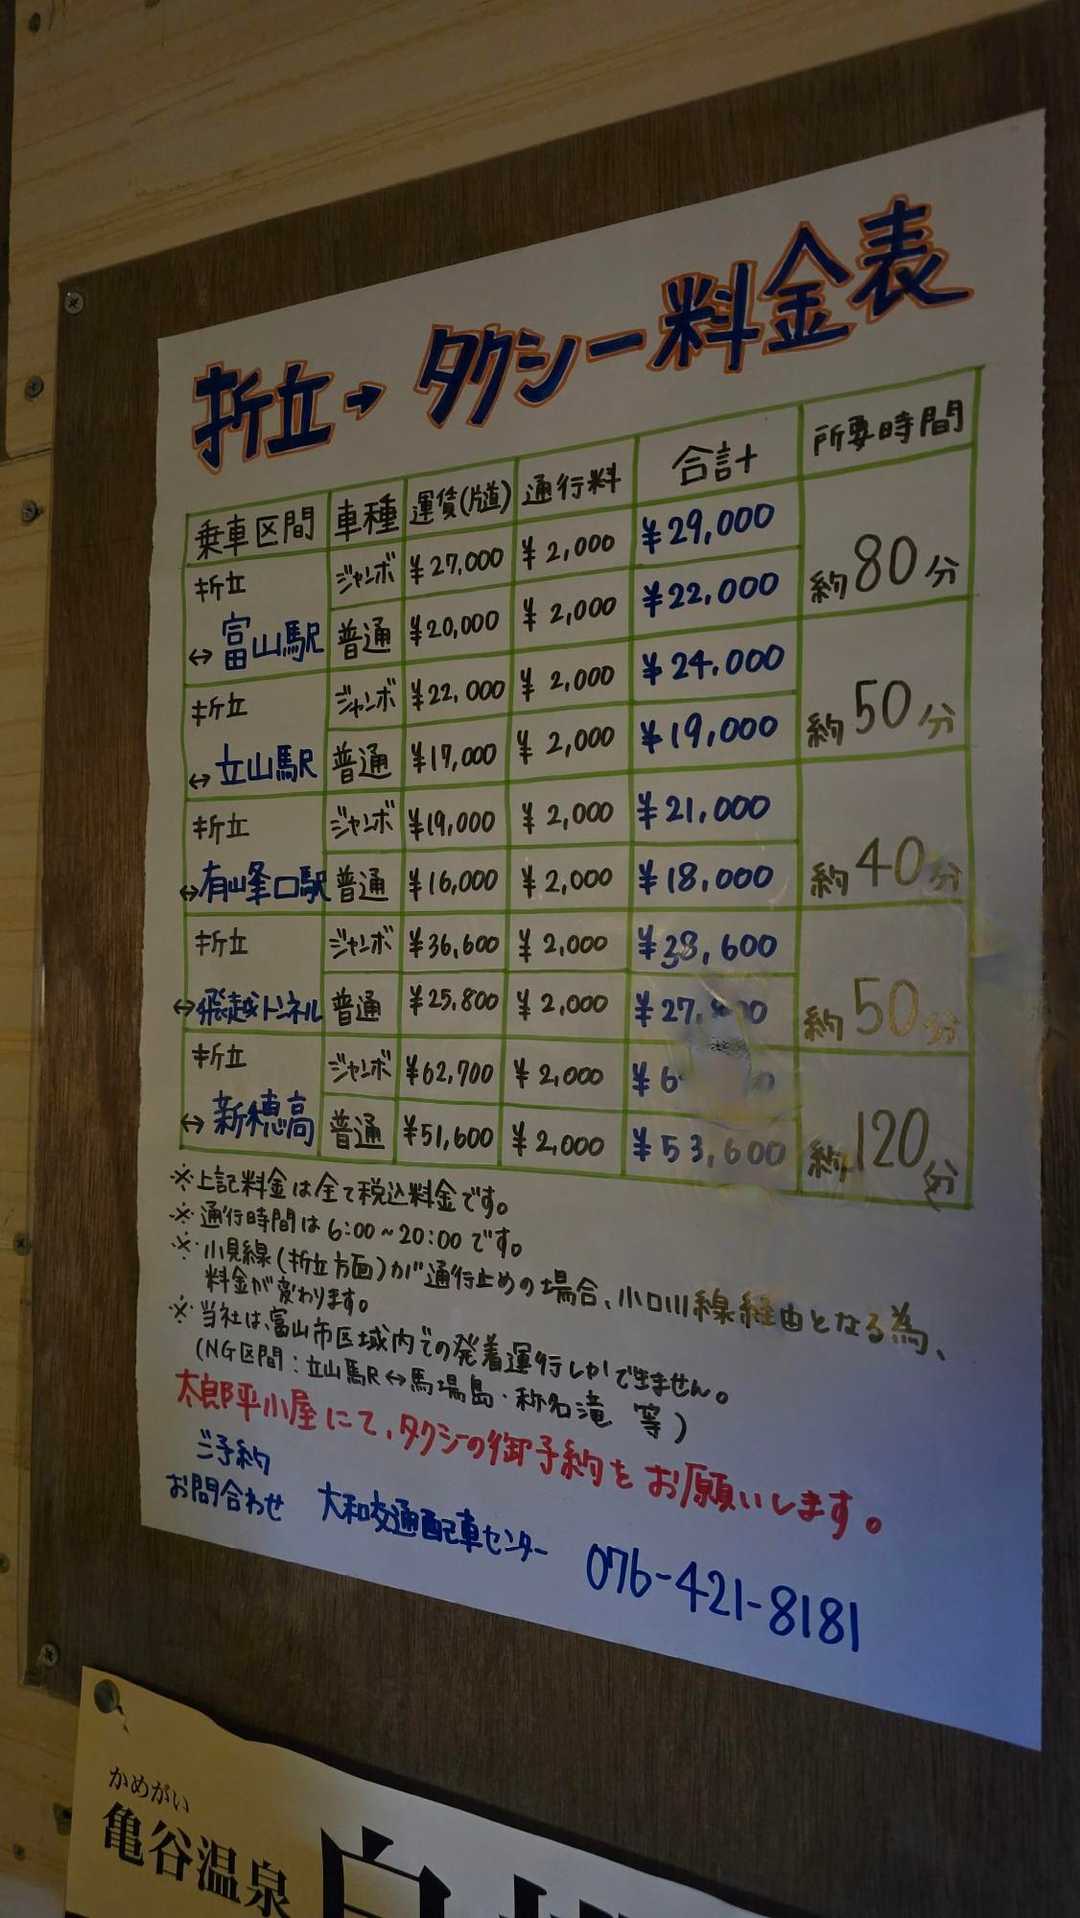 折立→タクシー料金表
乗車区間 車種 運賃(片道) 通行料 合計 所要時間
折立 ジャンボ ¥27,000 ¥2,000 ¥29,000
↔富山駅 普通 ¥20,000 ¥2,000 ¥22,000 約80分
折立 ジャンボ ¥22,000 ¥2,000 ¥24,000
↔立山駅 普通 ¥17,000 ¥2,000 ¥19,000 約50分
折立 ジャンボ ¥19,000 ¥2,000 ¥21,000
↔有峰口駅 普通 ¥16,000 ¥2,000 ¥18,000 約40分
折立 ジャンボ ¥36,600 ¥2,000 ¥38,600
↔飛越トンネル 普通 ¥25,800 ¥2,000 約50分
折立 ジャンボ ¥62,700 ¥2,000
↔新穂高 普通 ¥51,600 ¥2,000 ¥53,600 約120分
※上記料金は全て税込料金です。
※通行時間は6:00~20:00です。
※小見線(折立方面)が通行止めの場合、小口川線経由となる為、
料金が変わります。
※当社は、富山市区域内での発着運行しかできません。
(NG区間:立山駅↔馬場島・称名滝 等)
太郎平小屋にて、タクシーの御予約をお願いします。
ご予約
お問合わせ 大和交通配車センター 076-421-8181
かめがい
亀谷温泉